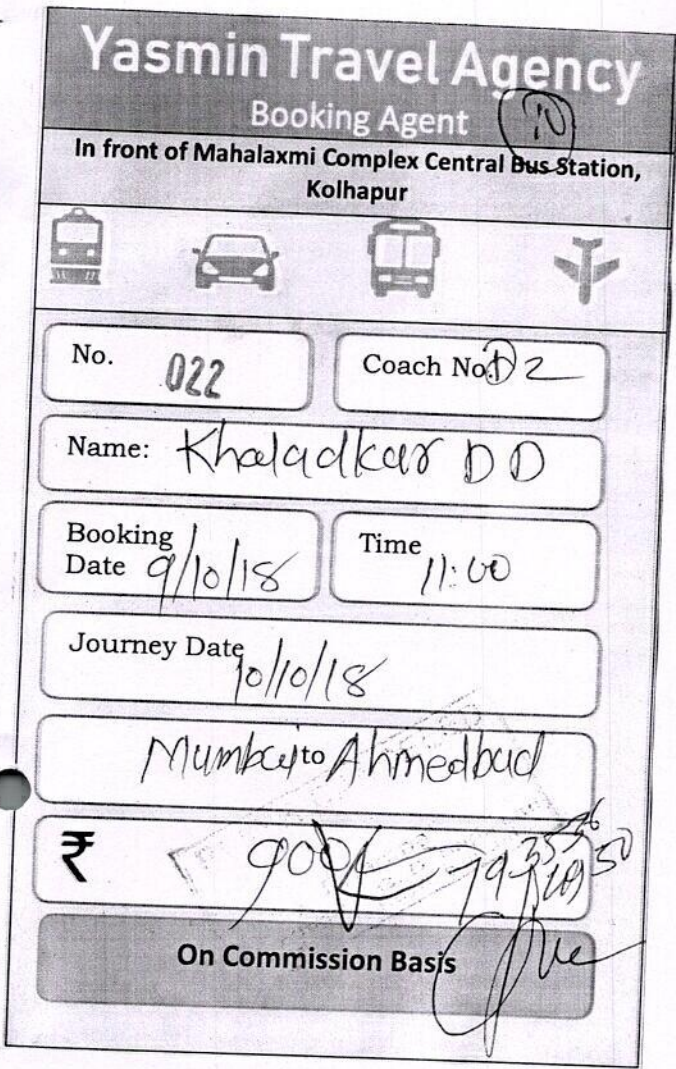 Yasmin Travel Agency
Booking Agent
10
In front of Mahalaxmi Complex Central Bus Station,
Kolhapur
No. 022
Coach No. D2
Name: Khaladkar D D
Booking
Date 9/10/18
Time 11:00
Journey Date 10/10/18
Mumbai to Ahmedbad
₹ 900/-
On Commission Basis